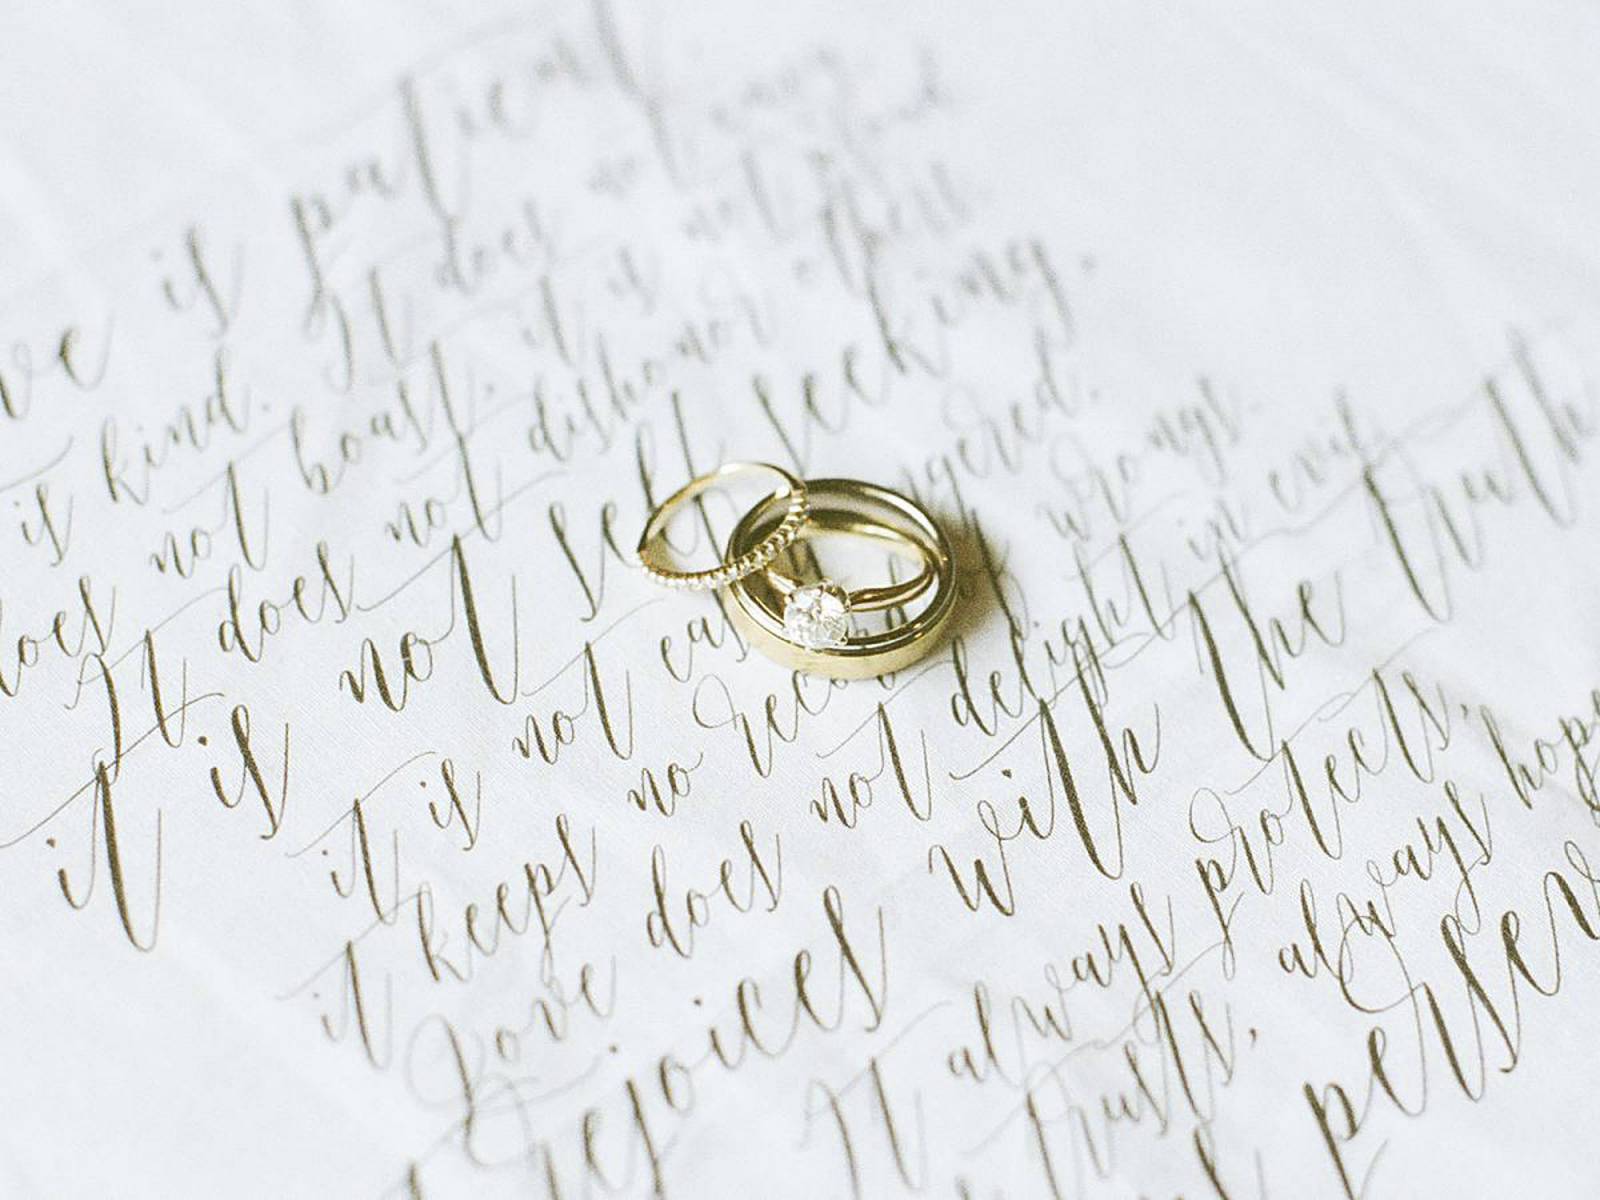 ve is patient
is kind. It does not envy
does not boast. it is not proud
It does not dishonor others
it is not self seeking.
it is not easily angered.
it keeps no record of wrongs.
Love does not delight in evil
rejoices with the truth
It always protects,
trusts, always hope
persev